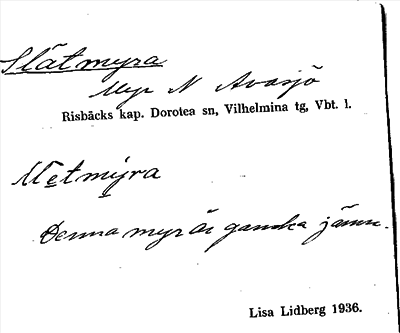 Slätmyra
Myr N Avasjö
Risbäcks kap. Dorotea sn, Vilhelmina tg, Vbt. l.
Denna myr är ganska jämn.
Lisa Lidberg 1936.